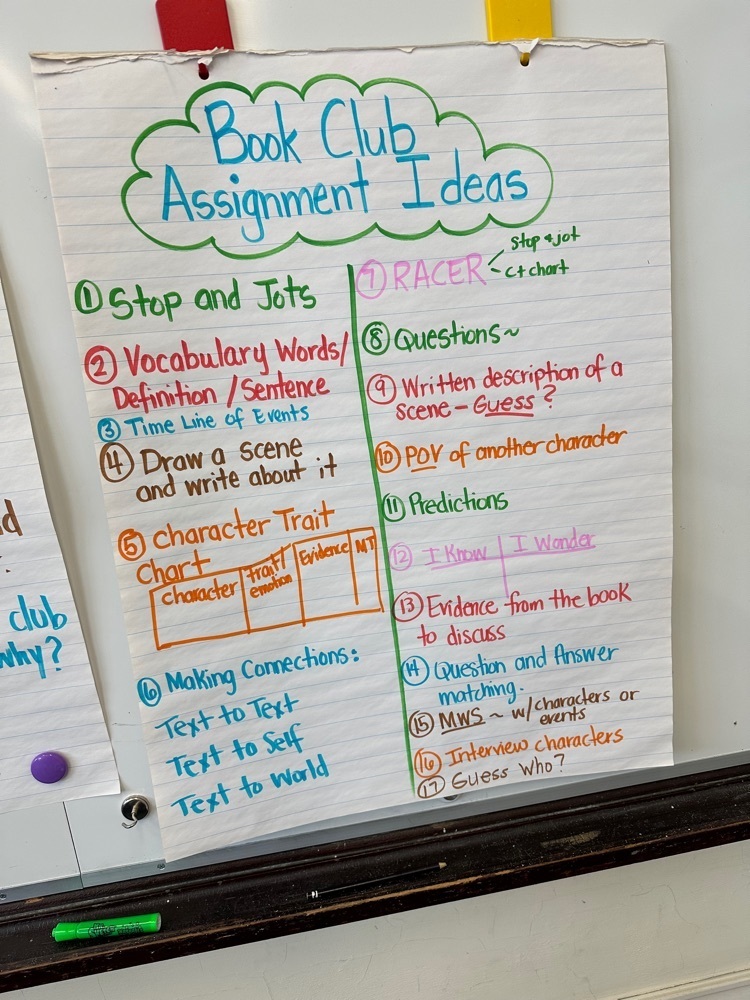 Book Club
Assignment Ideas
① Stop and Jots
② Vocabulary Words/
Definition / Sentence
③ Time Line of Events
④ Draw a scene
and write about it
⑤ Character Trait
Chart
Character | trait/ emotion | Evidence | MT
⑥ Making Connections:
Text to Text
Text to Self
Text to World
⑦ RACER
Stop + jot
CT chart
⑧ Questions~
⑨ Written description of a
scene – Guess?
⑩ POV of another character
⑪ Predictions
⑫ I Know | I Wonder
⑬ Evidence from the book
to discuss
⑭ Question and Answer
matching.
⑮ MWS ~ w/characters or
events
⑯ Interview characters
⑰ Guess Who?
d
club
why?